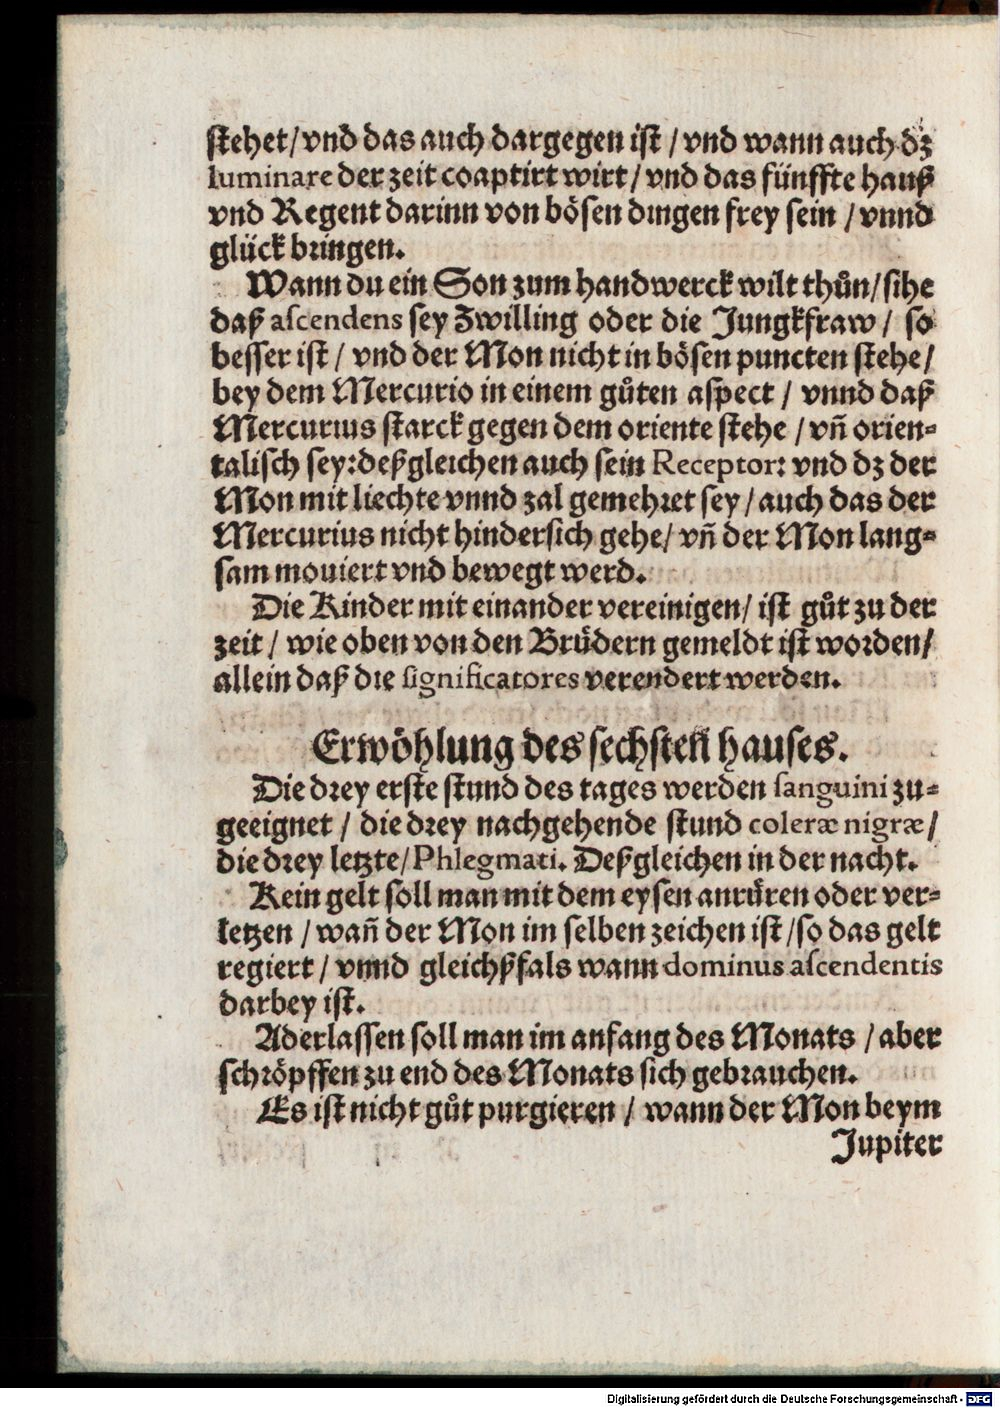 stehet/ vnd das auch dargegen ist / vnd wann auch dz
luminare der zeit coaptirt wirt / vnd das fünffte hauß
vnd Regent darinn von bösen dingen frey sein / vnnd
glück bringen.
Wann du ein Son zum handwerck wilt thůn/ sihe
daß ascendens sey Zwilling oder die Jungkfraw / so
besser ist / vnd der Mon nicht in bösen puncten stehe/
bey dem Mercurio in einem gůten aspect / vnnd daß
Mercurius starck gegen dem oriente stehe / vñ orien-
talisch sey: deßgleichen auch sein Receptor: vnd dz der
Mon mit liechte vnnd zal gemehret sey / auch das der
Mercurius nicht hindersich gehe/ vñ der Mon lang-
sam mouiert vnd bewegt werd.
Die Kinder mit einander vereinigen/ ist gůt zu der
zeit / wie oben von den Brüdern gemeldt ist worden/
allein daß die significatores verendert werden.
Erwöhlung des sechsten hauses.
Die drey erste stund des tages werden sanguini zu-
geeignet / die drey nachgehende stund coleræ nigræ/
die drey letzte/ Phlegmati. Deßgleichen in der nacht.
Kein gelt soll man mit dem eysen anrüren oder ver-
letzen / wañ der Mon im selben zeichen ist /so das gelt
regiert / vnnd gleichßfals wann dominus ascendentis
darbey ist.
Aderlassen soll man im anfang des Monats / aber
schröpffen zu end des Monats sich gebrauchen.
Es ist nicht gůt purgieren / wann der Mon beym
Jupiter
Digitalisierung gefördert durch die Deutsche Forschungsgemeinschaft - DFG